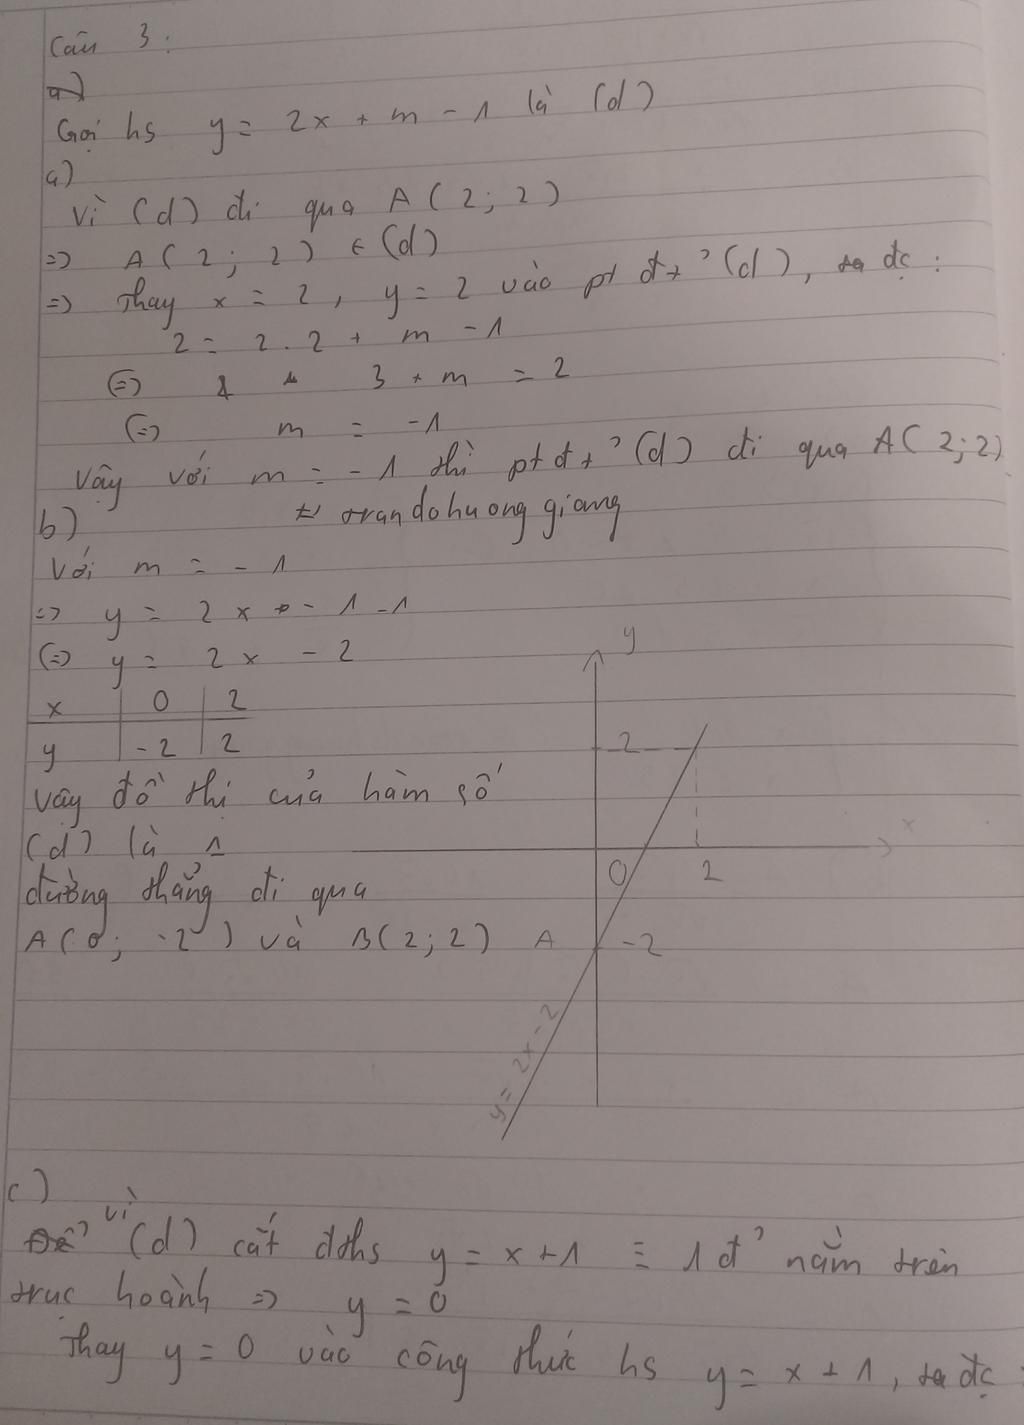 Câu 3:
a)
Gọi hs y = 2x + m - 1 là (d)
a)
Vì (d) đi qua A(2; 2)
=> A(2; 2) ∈ (d)
=> Thay x = 2, y = 2 vào pt đt² (d), ta đc:
2 = 2.2 + m - 1
<=> 3 + m = 2
<=> m = -1
Vậy với m = -1 thì pt đt² (d) đi qua A(2;2)
b) trandohuonggiang
Với m = -1
=> y = 2x - 1 - 1
<=> y = 2x - 2
x | 0 | 2
y | -2 | 2
Vậy đồ thị của hàm số
(d) là 1
đường thẳng đi qua
A(0; -2) và B(2;2)
y
2
x
O 2
A -2
y = 2x - 2
c)
Vì (d) cắt đths y = x + 1 ≡ 1 đ' nằm trên
trục hoành => y = 0
Thay y = 0 vào công thức hs y = x + 1, ta đc: